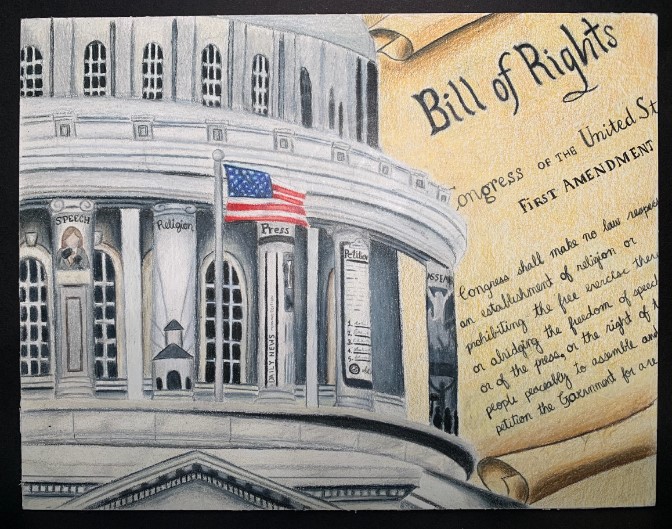 Bill of Rights
Congress OF THE United St
FIRST AMENDMENT
Congress shall make no law respec
an establishment of religion or
prohibiting the free exercise there
or abridging the freedom of speech
or of the press, or the right of t
people peaceably to assemble and
petition the Government for a re
SPEECH
Religion
Press
DAILY NEWS
Petition
1.
2.
3.
4.
5.
ASSEM